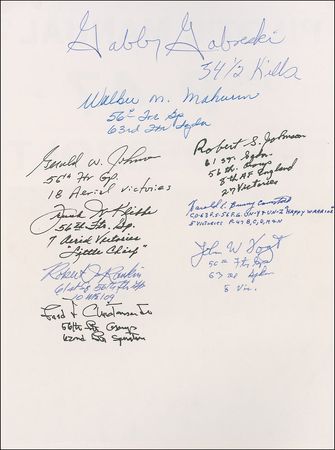 Gabby Gabreski
34 1/2 Kills
Walker M. Mahurin
56th Ftr Gp
63rd Ftr Sqdn
Robert S. Johnson
61 st. Sqdn.
56th Group
8th AF England
27 Victories
Gerald W. Johnson
56th Ftr Gp.
18 Aerial Victories
56th Ftr. Gp.
7 Aerial Victories
"Little Chief"
Harold E. Bunny Comstock
"HAPPY WARRIOR"
5 Victories P-47 B, C, D, M & N
John W. Vogt
56th Ftr Gp
63rd Sqdn
8 Vic.
Robert J. Rankin
61st 56th Ftr Gp
10 ME 109
Fred J. Christensen Jr.
56th Ftr Group
62nd Ftr Squadron